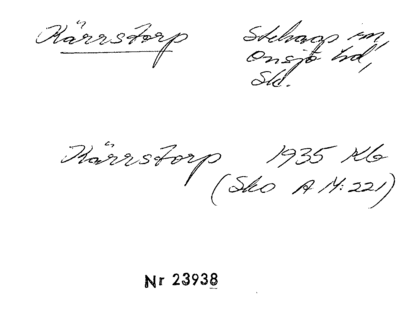 Kärrstorp Stehags sn,
Onsjö hd,
Sk.
Kärrstorp 1935 Kb
(Sko A M:221)
Nr 23938